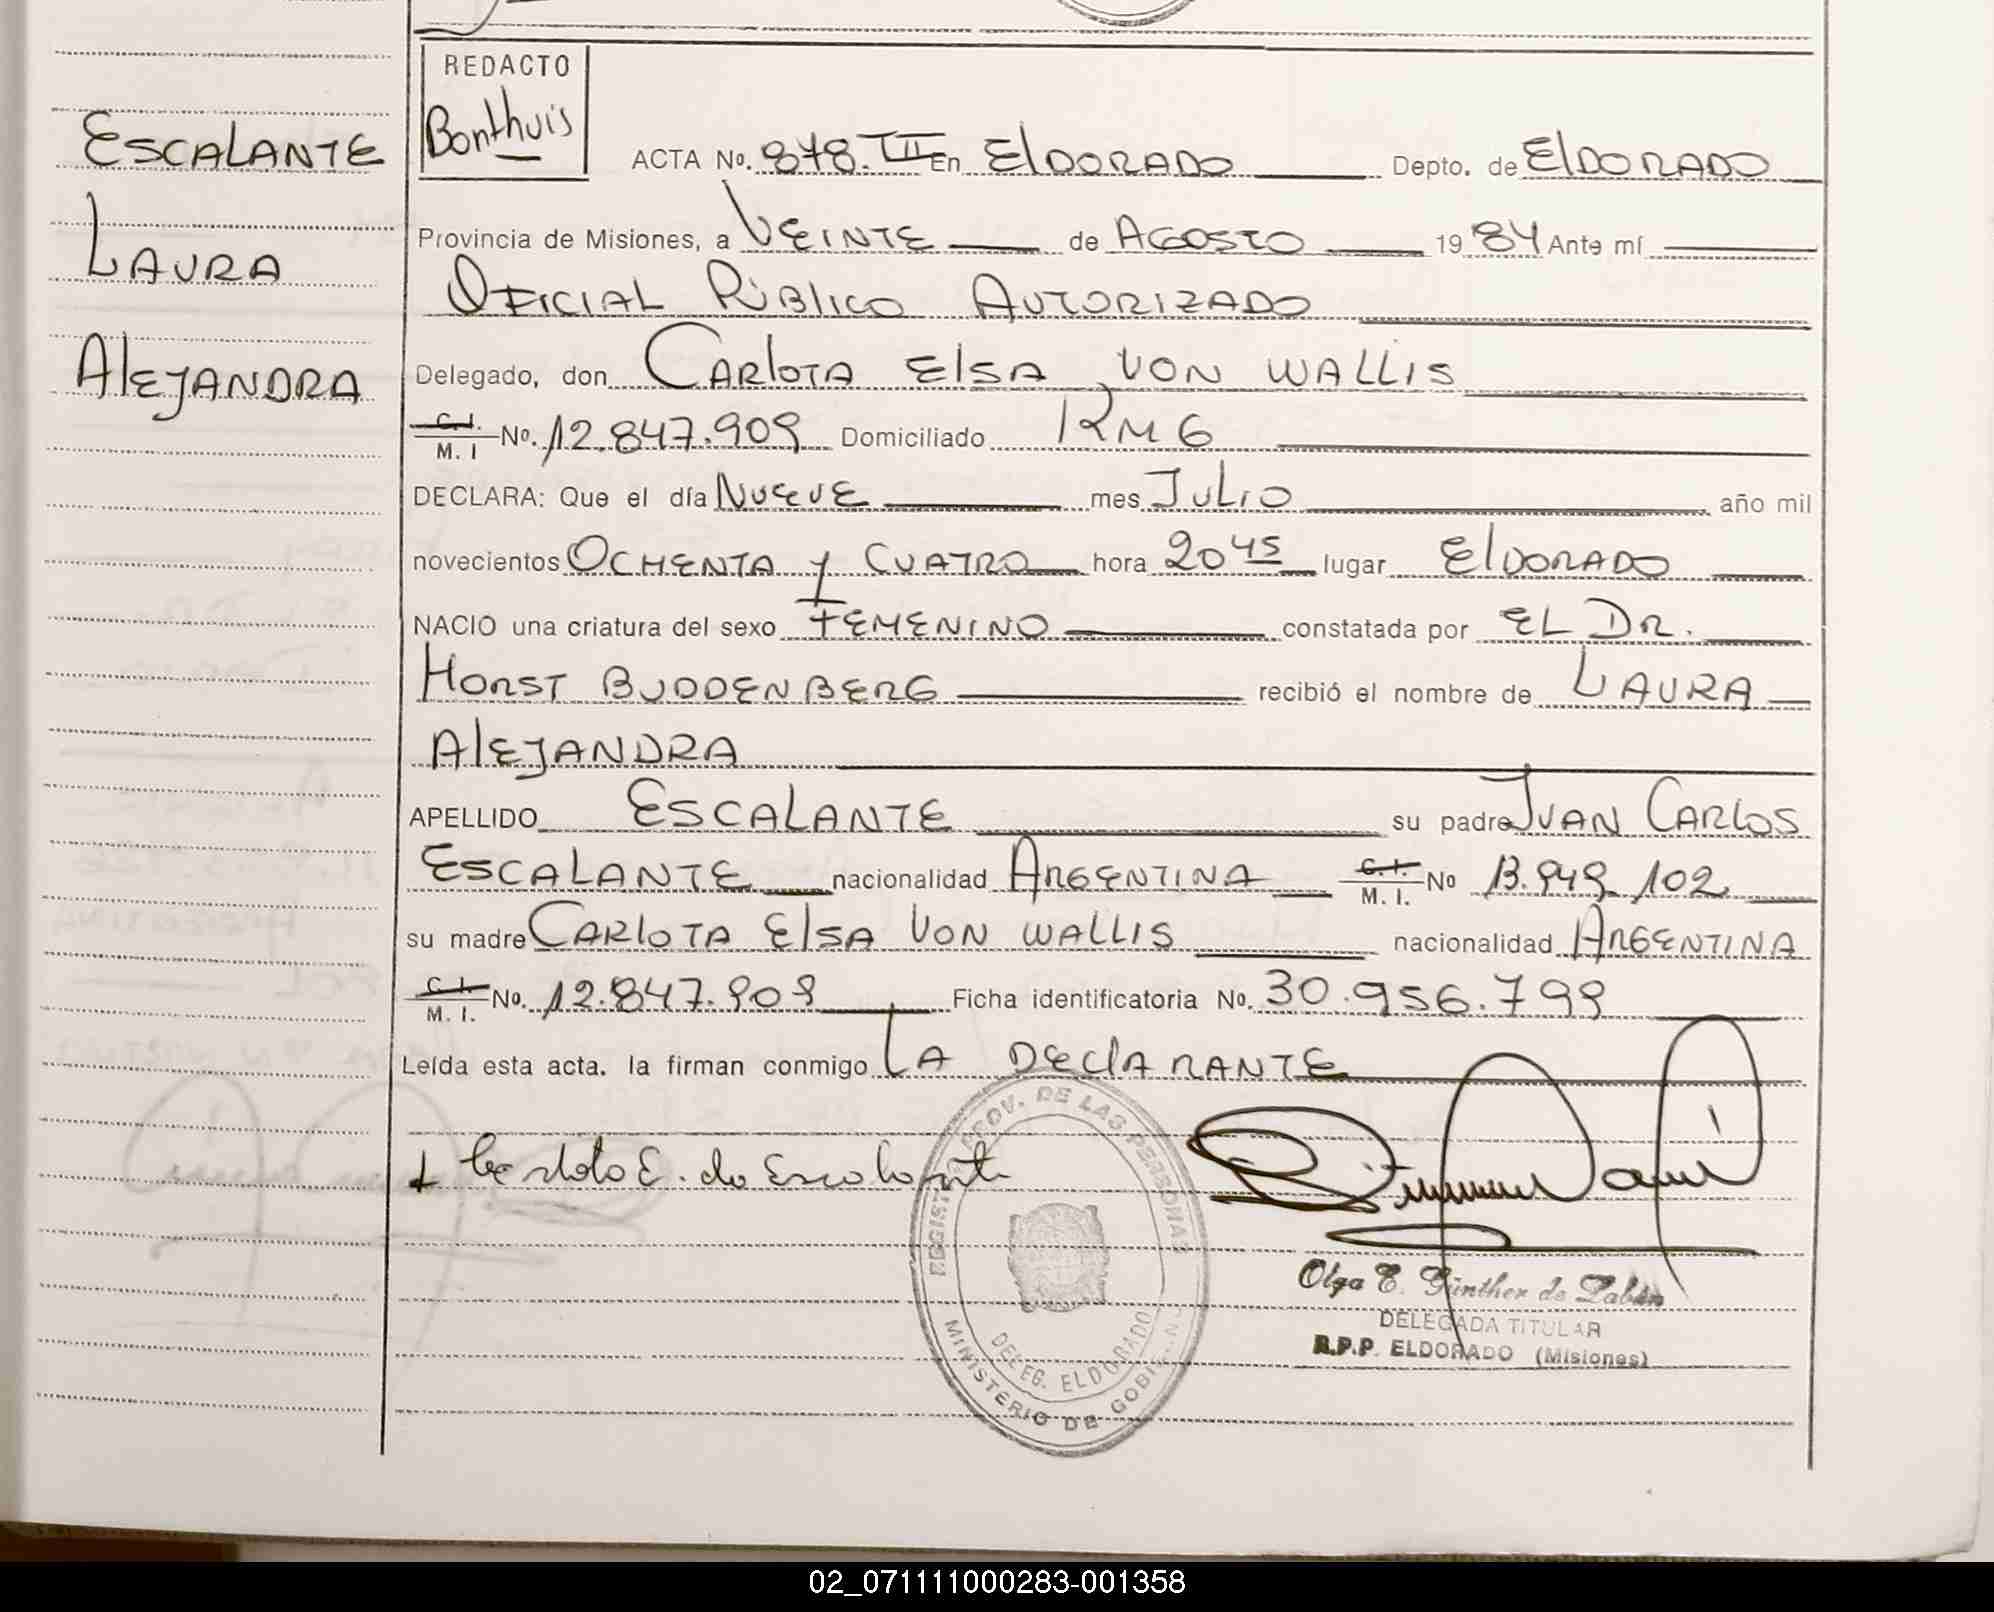 ESCALANTE
LAURA
ALEJANDRA
REDACTO
Bonthuis
ACTA No. 878. TII En ElDORADO Depto. de ElDORADO
Provincia de Misiones, a VEINTE de AGOSTO 19 84 Ante mí
OFICIAL PÚBLICO AUTORIZADO
Delegado, don CARLOTA ELSA VON WALLIS
C. I. / M. I No. 12.847.909 Domiciliado KM 6
DECLARA: Que el día NUEVE mes JULIO año mil
novecientos OCHENTA Y CUATRO hora 20 45 lugar ELDORADO
NACIO una criatura del sexo FEMENINO constatada por EL DR.
HORST BUDDENBERG recibió el nombre de LAURA
ALEJANDRA
APELLIDO ESCALANTE su padre JUAN CARLOS
ESCALANTE nacionalidad ARGENTINA C. I. / M. I. No 13.949.102
su madre CARLOTA ELSA VON WALLIS nacionalidad ARGENTINA
C. I. / M. I. No. 12.847.909 Ficha identificatoria No. 30.956.799
Leída esta acta. la firman conmigo LA DECLARANTE
E. de Escalante
PROV. DE LAS PERSONAS
MINISTERIO DE GOB
DELEG. ELDORADO
Olga E. Günther de
DELEGADA TITULAR
R.P.P. ELDORADO (Misiones)
02_071111000283-001358